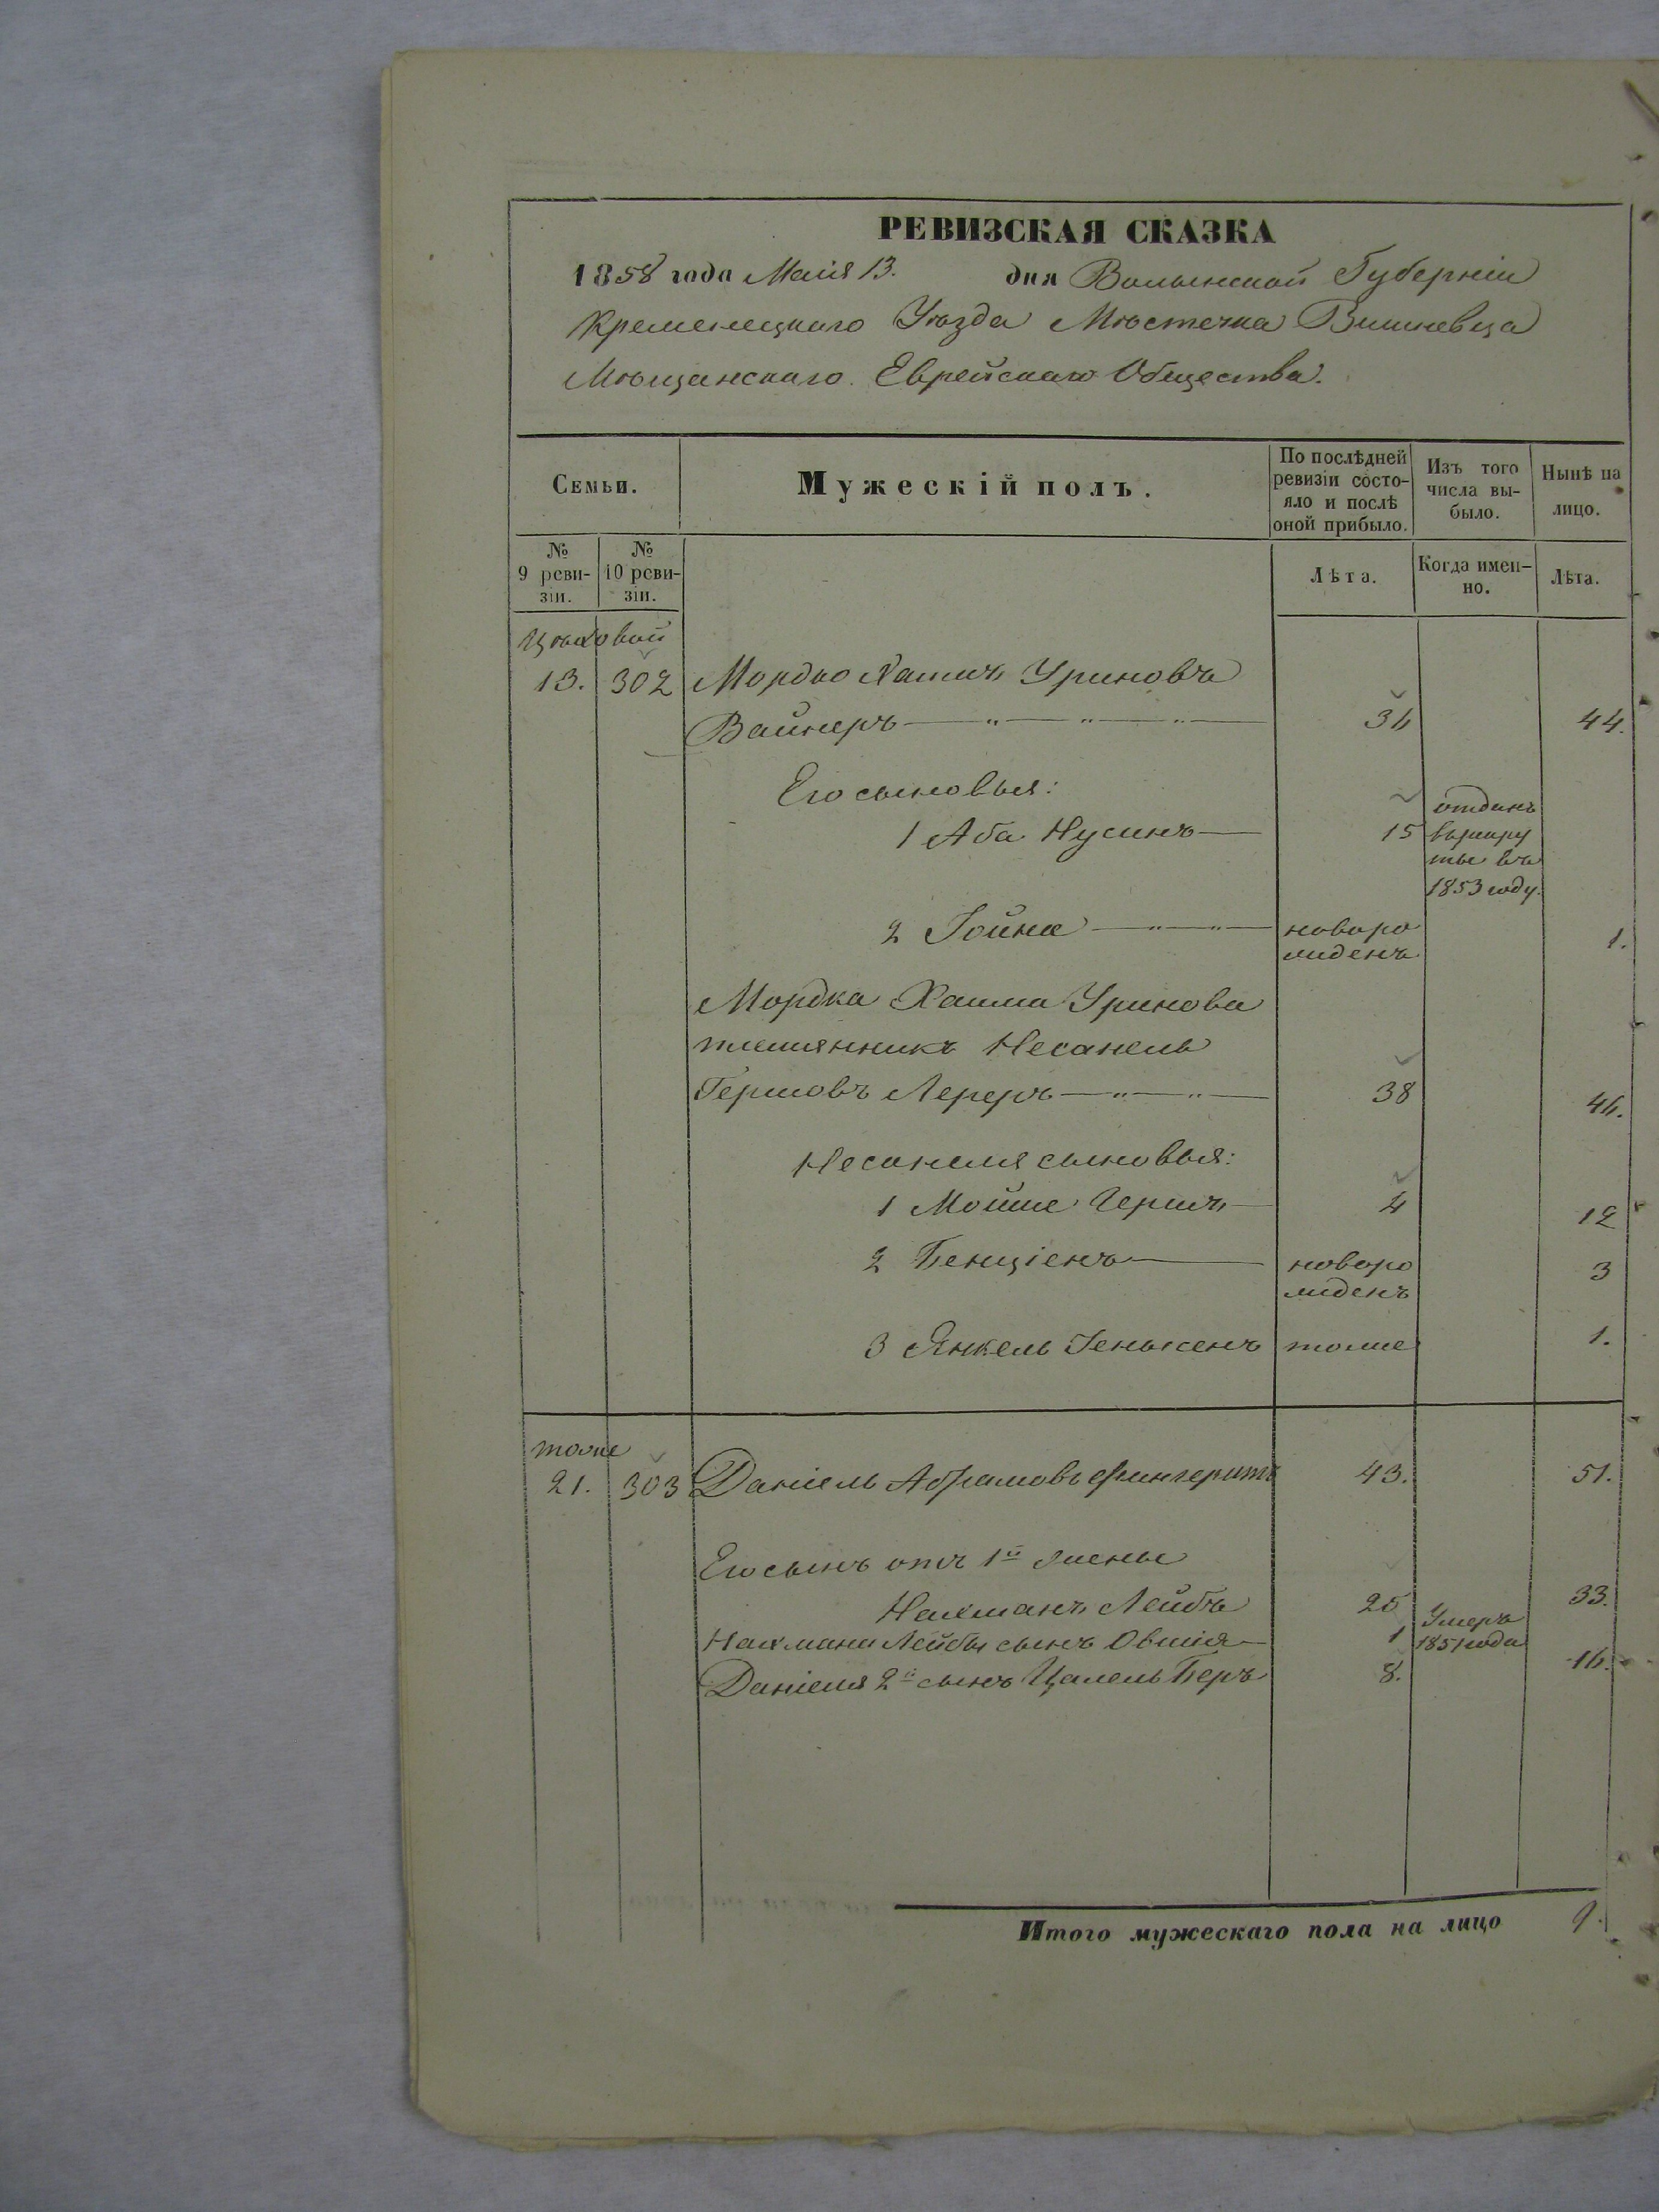 РЕВИЗСКАЯ СКАЗКА
1858 года Маія 13. дня Волынской Губерніи
Кременецкаго Уѣзда Мѣстечка Вишневца
Мѣщанскаго Еврейскаго Общества.
Семьи.
Мужескій полъ.
По послѣдней ревизіи состо-
яло и послѣ оной прибыло.
Изъ того числа вы-
было.
Нынѣ на лицо.
№ 9 реви-
зіи.
№ 10 реви-
зіи.
Лѣта.
Когда имен-
но.
Лѣта.
Цѣховой
13. 302 Мордко Хаимъ Уриновъ
Вайнеръ 36 44.
Его сыновья:
1 Аба Нусинъ 15 отданъ
врекру
ты въ
1853 году.
2 Іойна новоро
жденъ 1.
Мордка Хаима Уринова
племянникъ Несанель
Гершовъ Лереръ 38 46.
Несанеля сыновья:
1 Мойше Гершъ 4 12
2 Бенціонъ новоро
жденъ 3
3 Янкель тоже 1.
тоже
21. 303 Даніель Абрамовъ Фингерутъ 43. 51.
Его сынъ отъ 1й жены
Нахманъ Лейбъ 25 33.
Нахмана Лейбы сынъ Овшія 1 Умеръ
1851 года
Даніеля 2й сынъ Цалель Беръ 8. 16.
Итого мужескаго пола на лицо 9.